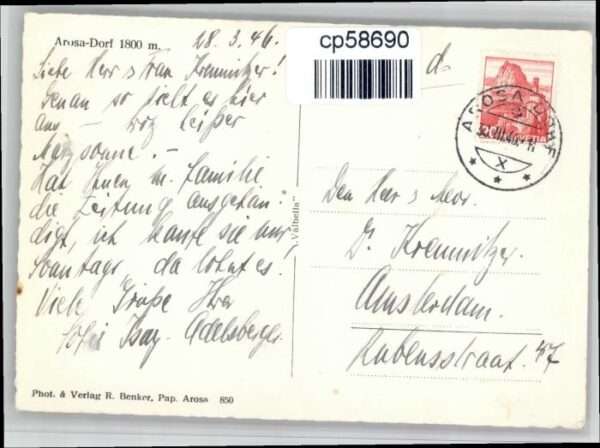 Arosa-Dorf 1800 m.
28.3.46.
cp58690
Liebe Herr & Frau Kremnitzer!
Genau so sieht es hier
aus – trotz heißer
Märzsonne. –
Hat Ihnen m. Familie
die Zeitung ausgehän-
digt, ich kaufe sie nur
Sonntags, da lohnt es.
Viele Grüße Ihre
Isay-Adelsberger.
"Valbella"
d.
AROSA DORF
X
Den Heer & Mevr.
D. Kremnitzer.
Amsterdam.
Rubensstraat. 47
Phot. & Verlag R. Benker, Pap. Arosa 850